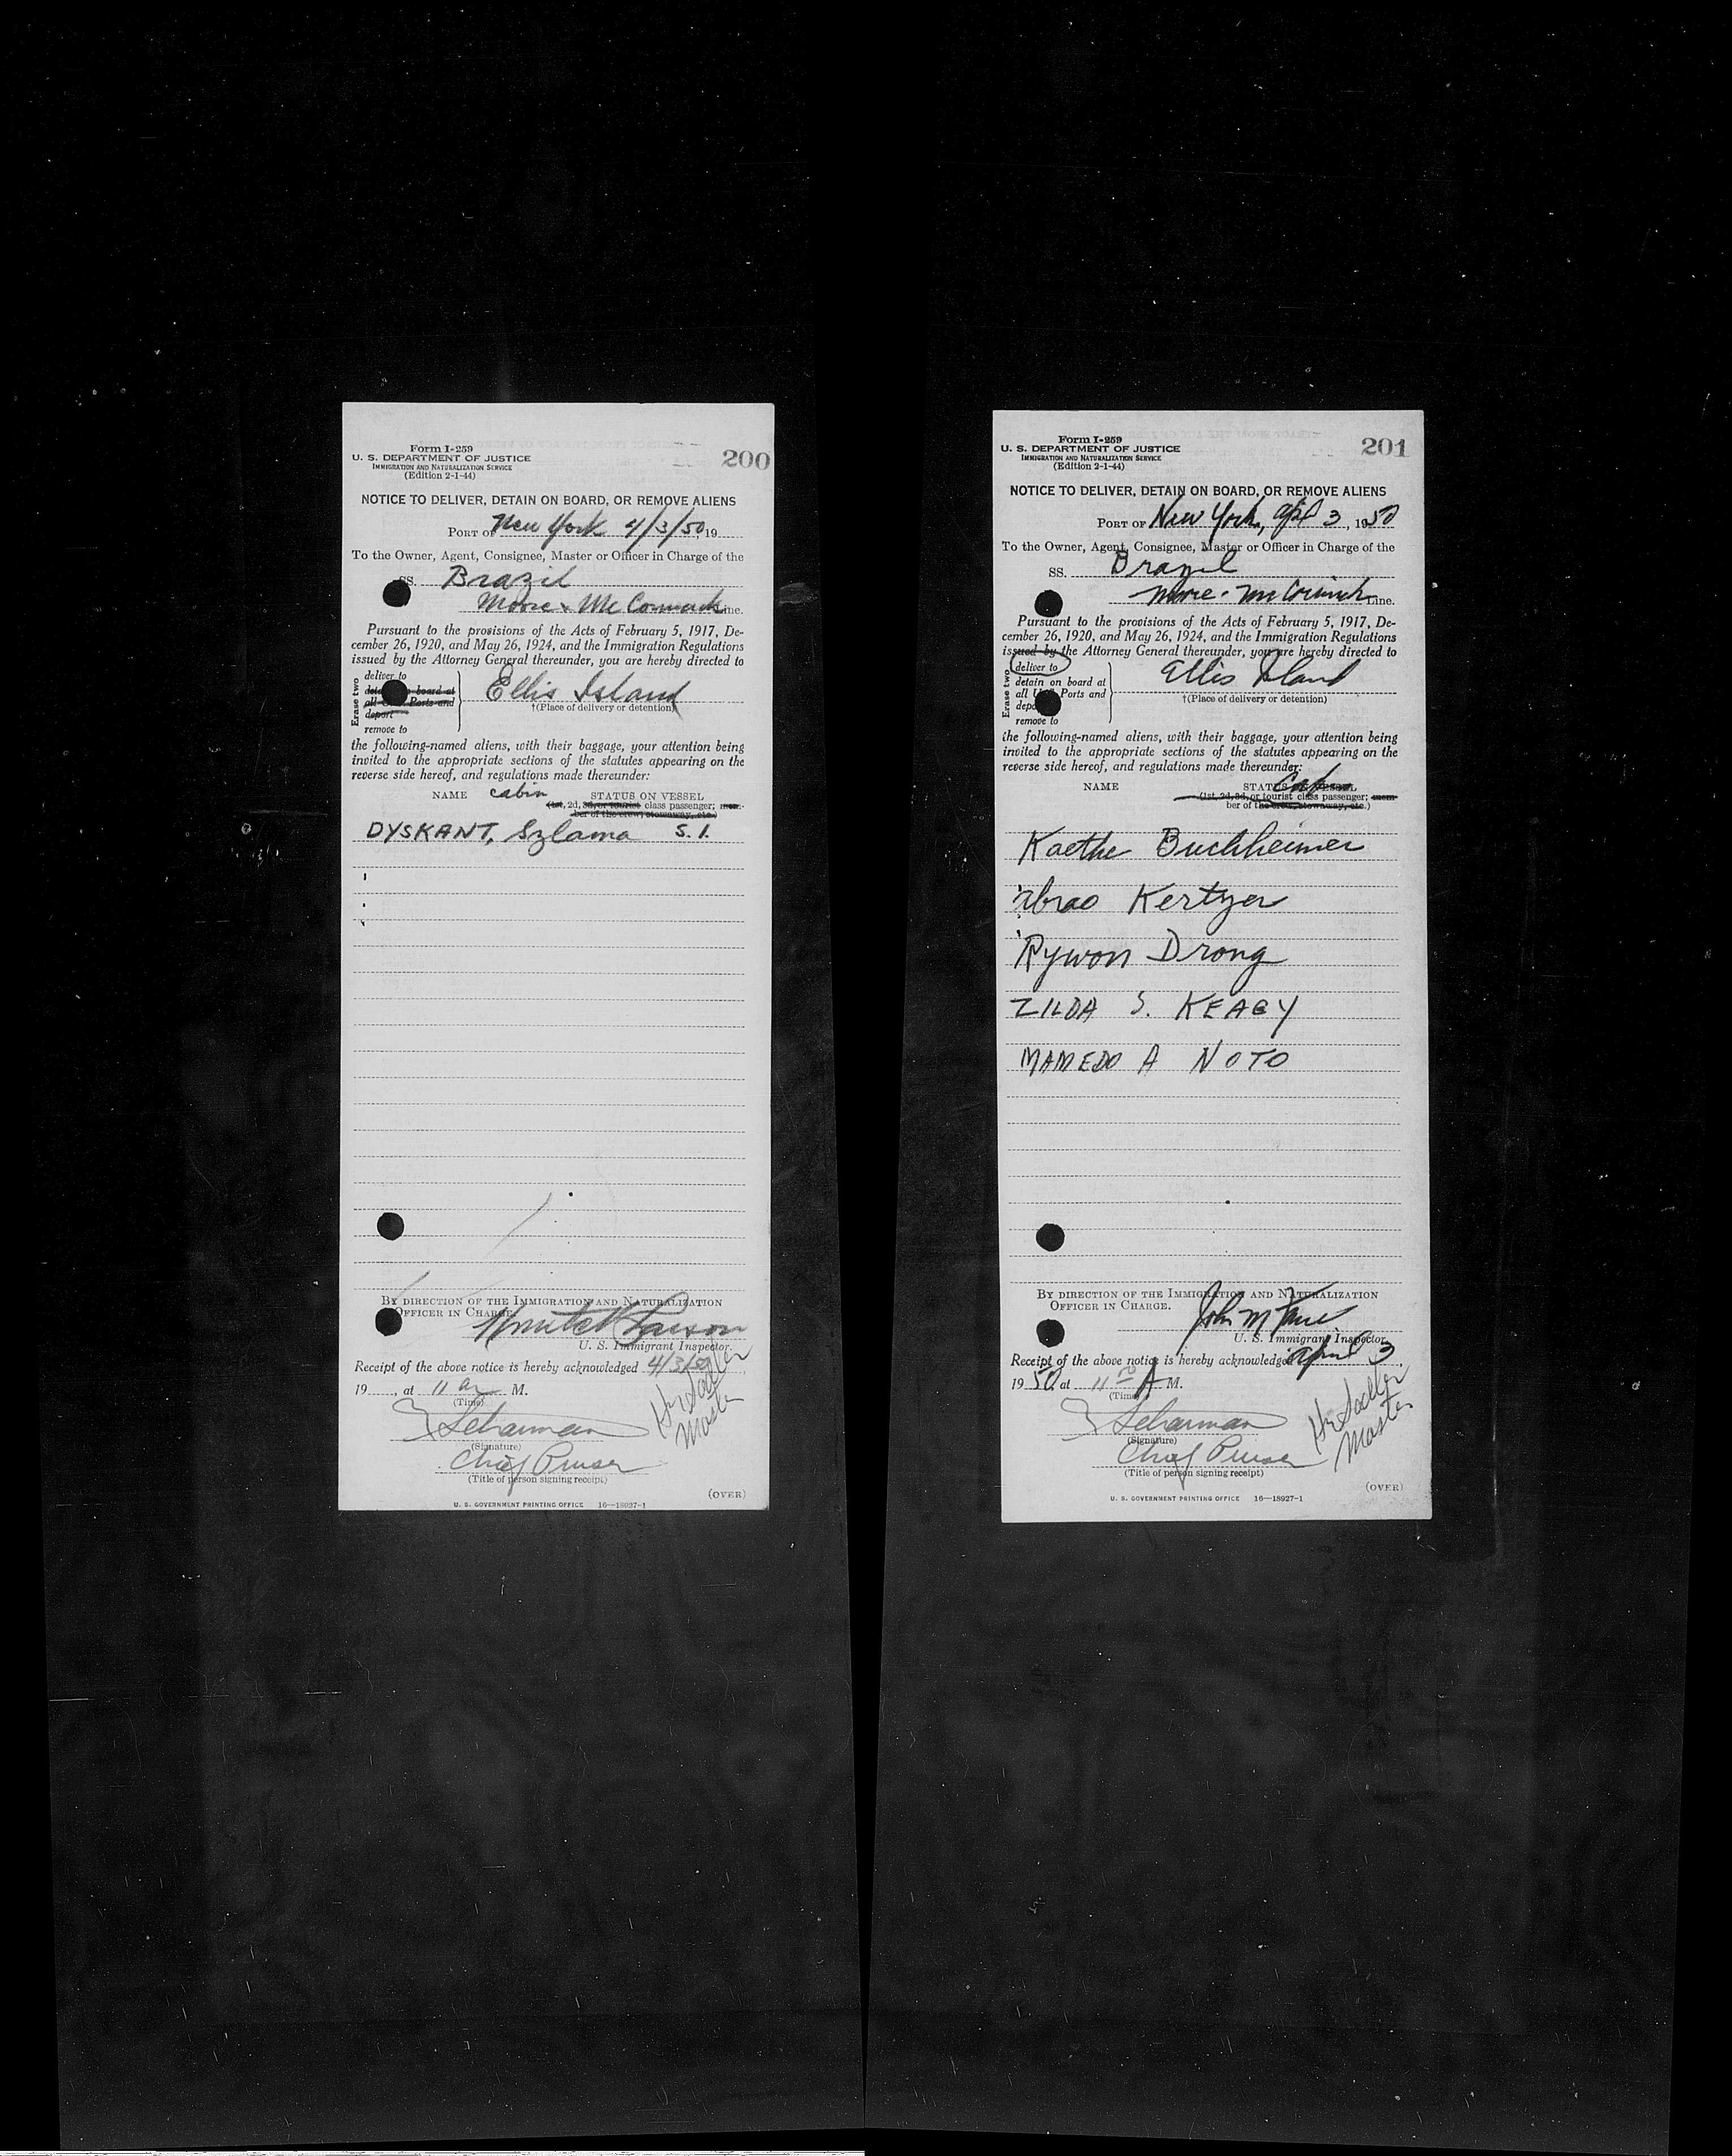 Form I-259
U. S. DEPARTMENT OF JUSTICE
IMMIGRATION AND NATURALIZATION SERVICE
(Edition 2-1-44)
200
NOTICE TO DELIVER, DETAIN ON BOARD, OR REMOVE ALIENS
PORT OF New York 4/3/50, 19
To the Owner, Agent, Consignee, Master or Officer in Charge of the
SS. Brazil
Moore & McCormack Line.
Pursuant to the provisions of the Acts of February 5, 1917, De-
cember 26, 1920, and May 26, 1924, and the Immigration Regulations
issued by the Attorney General thereunder, you are hereby directed to
Erase two
deliver to
board at
all Ports and
deport
remove to
Ellis Island
†(Place of delivery or detention)
the following-named aliens, with their baggage, your attention being
invited to the appropriate sections of the statutes appearing on the
reverse side hereof, and regulations made thereunder:
NAME cabin STATUS ON VESSEL
(1st, 2d, 3d, or tourist class passenger; mem-
ber of the crew, stowaway, etc.)
DYSKANT, Szlama S. I.
BY DIRECTION OF THE IMMIGRATION AND NATURALIZATION
OFFICER IN CHARGE.
Larson
U. S. Immigrant Inspector.
Receipt of the above notice is hereby acknowledged 4/3/50,
19 , at 11 am M.
(Time)
Scharman
(Signature)
Chief Purser
(Title of person signing receipt)
Sadler
Master
(OVER)
U. S. GOVERNMENT PRINTING OFFICE 16—18927-1
Form I-259
U. S. DEPARTMENT OF JUSTICE
IMMIGRATION AND NATURALIZATION SERVICE
(Edition 2-1-44)
201
NOTICE TO DELIVER, DETAIN ON BOARD, OR REMOVE ALIENS
PORT OF New York, Apl 3, 1950
To the Owner, Agent, Consignee, Master or Officer in Charge of the
SS. Brazil
Moore - McCormick Line.
Pursuant to the provisions of the Acts of February 5, 1917, De-
cember 26, 1920, and May 26, 1924, and the Immigration Regulations
issued by the Attorney General thereunder, you are hereby directed to
Erase two
deliver to
detain on board at
all Ports and
remove to
Ellis Island
†(Place of delivery or detention)
the following-named aliens, with their baggage, your attention being
invited to the appropriate sections of the statutes appearing on the
reverse side hereof, and regulations made thereunder:
NAME STATUS ON VESSEL Cabin
(1st, 2d, 3d, or tourist class passenger; mem-
ber of the crew, stowaway, etc.)
Kaethe Buchheimer
Abrao Kertzer
Rywon Drong
ZILDA S. KEAGY
MAMEDO A NOTO
BY DIRECTION OF THE IMMIGRATION AND NATURALIZATION
OFFICER IN CHARGE.
John M
U. S. Immigrant Inspector.
Receipt of the above notice is hereby acknowledged April 3,
1950 at 11 A M.
(Time)
Scharman
(Signature)
Chief Purser
(Title of person signing receipt)
Sadler
Master
(OVER)
U. S. GOVERNMENT PRINTING OFFICE 16—18927-1